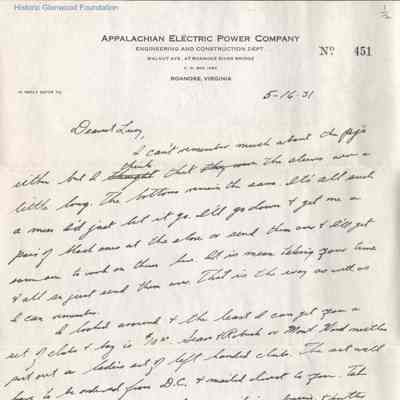 Historic Glenwood Foundation
1/2
APPALACHIAN ELECTRIC POWER COMPANY
ENGINEERING AND CONSTRUCTION DEPT.
WALNUT AVE., AT ROANOKE RIVER BRIDGE
P. O. BOX 1498
ROANOKE, VIRGINIA
No 451
IN REPLY REFER TO:
5-16-31
Dearest Lucy,
I can't remember much about the pj's
think
either but I thought that they were the sleeves were a
little long. The bottoms remain the same. It's all such
a mess I'd just let it go. I'll go down & get me a
pair of black ones at the store or send them over & I'll get
someone to work on them here. It is mean taking your time
& all so just send them over. That is the way as well as
I can remember.
I looked around & the least I can get you a
set of clubs & bag is $10.00. Sears Roebuck or Mont Ward neither
put out a ladies set of left handed clubs. The set will
have to be ordered from D.C. & mailed direct to you.